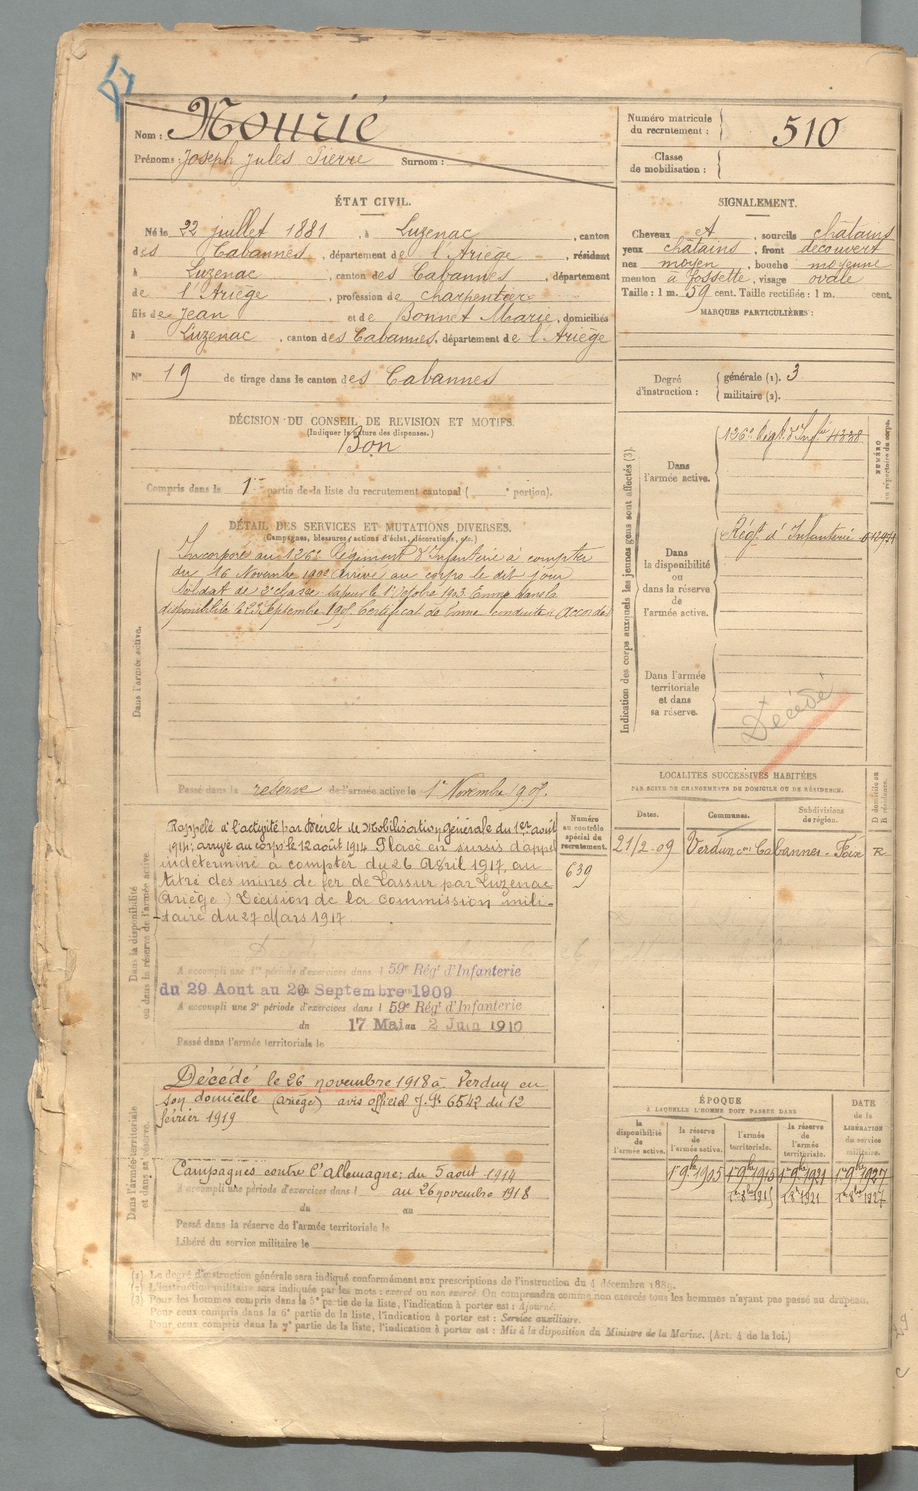 Nom : Mourié
Prénoms : Joseph Jules Pierre Surnom :
Numéro matricule du recrutement : 510
Classe de mobilisation :
ÉTAT CIVIL.
Né le 22 juillet 1881, à Luzenac, canton
des Cabannes, département de l'Ariège, résidant
à Luzenac, canton des Cabannes, département
de l'Ariège, profession de charpentier
fils de Jean et de Bonnet Marie, domiciliés
à Luzenac, canton des Cabannes, département de l'Ariège
N° 19 de tirage dans le canton des Cabannes
SIGNALEMENT.
Cheveux et, sourcils châtains
yeux châtains, front découvert
nez moyen, bouche moyenne
menton à fossette, visage ovale
Taille : 1 m. 59 cent. Taille rectifiée : 1 m. cent.
MARQUES PARTICULIÈRES :
Degré d'instruction : générale (1). 3
militaire (2).
DÉCISION DU CONSEIL DE REVISION ET MOTIFS.
(Indiquer la nature des dispenses.)
Bon
Compris dans la 1re partie de la liste du recrutement cantonal ( e portion).
DÉTAIL DES SERVICES ET MUTATIONS DIVERSES.
(Campagnes, blessures, actions d'éclat, décorations, etc.)
Dans l'armée active.
Incorporé au 126e Régiment d'Infanterie à compter
du 16 Novembre 1902 arrivé au corps le dit jour
Soldat de 2e classe. le 1er Octobre 1903. dans la
disponibilité le Septembre 1905 Certificat de bonne conduite « Accordé
Passé dans la réserve de l'armée active le 1er Novembre 1905.
Indication des corps auxquels les jeunes gens sont affectés (3).
NUMÉRO au répertoire du corps.
Dans l'armée active.
126e Régt d'Infie
Dans la disponibilité ou dans la réserve de l'armée active.
Régt d'Infanterie
Dans l'armée territoriale et dans sa réserve.
Décédé
Dans la disponibilité ou dans la réserve de l'armée active
Rappelé à l'activité par Décret de Mobilisation générale du 1er août
1914; arrivé au corps le 12 août 1914 Placé en sursis d'appel
indéterminé à compter du 26 Avril 1917, au
titre des mines de fer de Lassur par Luzenac
(Ariège) Décision de la commission mili-
taire du 27 Mars 1917.
Numéro au contrôle spécial du recrutement.
639
A accompli une 1re période d'exercices dans l 59e Régt d'Infanterie
du 29 Aout au 20 Septembre 1909
A accompli une 2e période d'exercices dans l 59e Régt d'Infanterie
du 17 Mai au 2 Juin 1910
Passé dans l'armée territoriale le
LOCALITÉS SUCCESSIVES HABITÉES
PAR SUITE DE CHANGEMENTS DE DOMICILE OU DE RÉSIDENCE.
D domicile ou R résidence.
Dates. Communes. Subdivisions de région.
21/2-09 Verdun con Cabannes - Foix R
Dans l'armée territoriale et dans sa réserve.
Décédé le 26 novembre 1918 à Verdun en
son domicile (Ariège) avis officiel J.Y. 6542 du 12
février 1919
Campagnes contre l'Allemagne: du 5 août 1914
A accompli une période d'exercices dans l
au 26 novembre 1918
du au
Passé dans la réserve de l'armée territoriale le
Libéré du service militaire le
ÉPOQUE
À LAQUELLE L'HOMME DOIT PASSER DANS
la disponibilité de l'armée active.
la réserve de l'armée active.
l'armée territoriale.
la réserve de l'armée territoriale.
DATE de la LIBÉRATION du service militaire.
1er 9bre 1905 1er 9bre 1915 1er 9bre 1921 1er 9bre 1927
1er 8bre 1915 1er 8bre 1921 1er 8bre 1927
(1) Le degré d'instruction générale sera indiqué conformément aux prescriptions de l'instruction du 4 décembre 1889.
(2) L'instruction militaire sera indiquée par les mots : exercé ou non exercé. On comprendra comme non exercés tous les hommes n'ayant pas passé au drapeau.
(3) Pour les hommes compris dans la 5e partie de la liste, l'indication à porter est : Ajourné.
Pour ceux compris dans la 6e partie de la liste, l'indication à porter est : Service auxiliaire.
Pour ceux compris dans la 7e partie de la liste, l'indication à porter est : Mis à la disposition du Ministre de la Marine. (Art. 4 de la loi.)